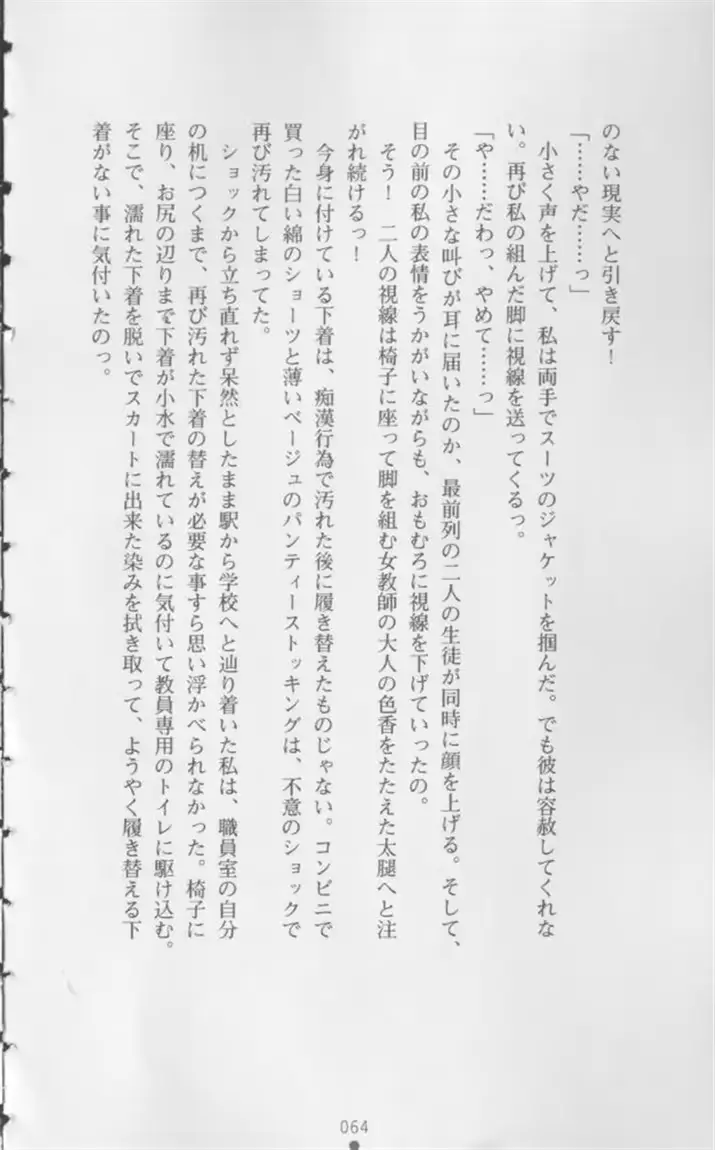 のない現実へと引き戻す！
「……やだ……っ」
小さく声を上げて、私は両手でスーツのジャケットを掴んだ。でも彼は容赦してくれな
い。再び私の組んだ脚に視線を送ってくるっ。
「や……だわっ、やめて……っ」
その小さな叫びが耳に届いたのか、最前列の二人の生徒が同時に顔を上げる。そして、
目の前の私の表情をうかがいながらも、おもむろに視線を下げていったの。
そう！　二人の視線は椅子に座って脚を組む女教師の大人の色香をたたえた太腿へと注
がれ続けるっ！
今身に付けている下着は、痴漢行為で汚れた後に履き替えたものじゃない。コンビニで
買った白い綿のショーツと薄いベージュのパンティーストッキングは、不意のショックで
再び汚れてしまってた。
ショックから立ち直れず呆然としたまま駅から学校へと辿り着いた私は、職員室の自分
の机につくまで、再び汚れた下着の替えが必要な事すら思い浮かべられなかった。椅子に
座り、お尻の辺りまで下着が小水で濡れているのに気付いて教員専用のトイレに駆け込む。
そこで、濡れた下着を脱いでスカートに出来た染みを拭き取って、ようやく履き替える下
着がない事に気付いたのっ。
064